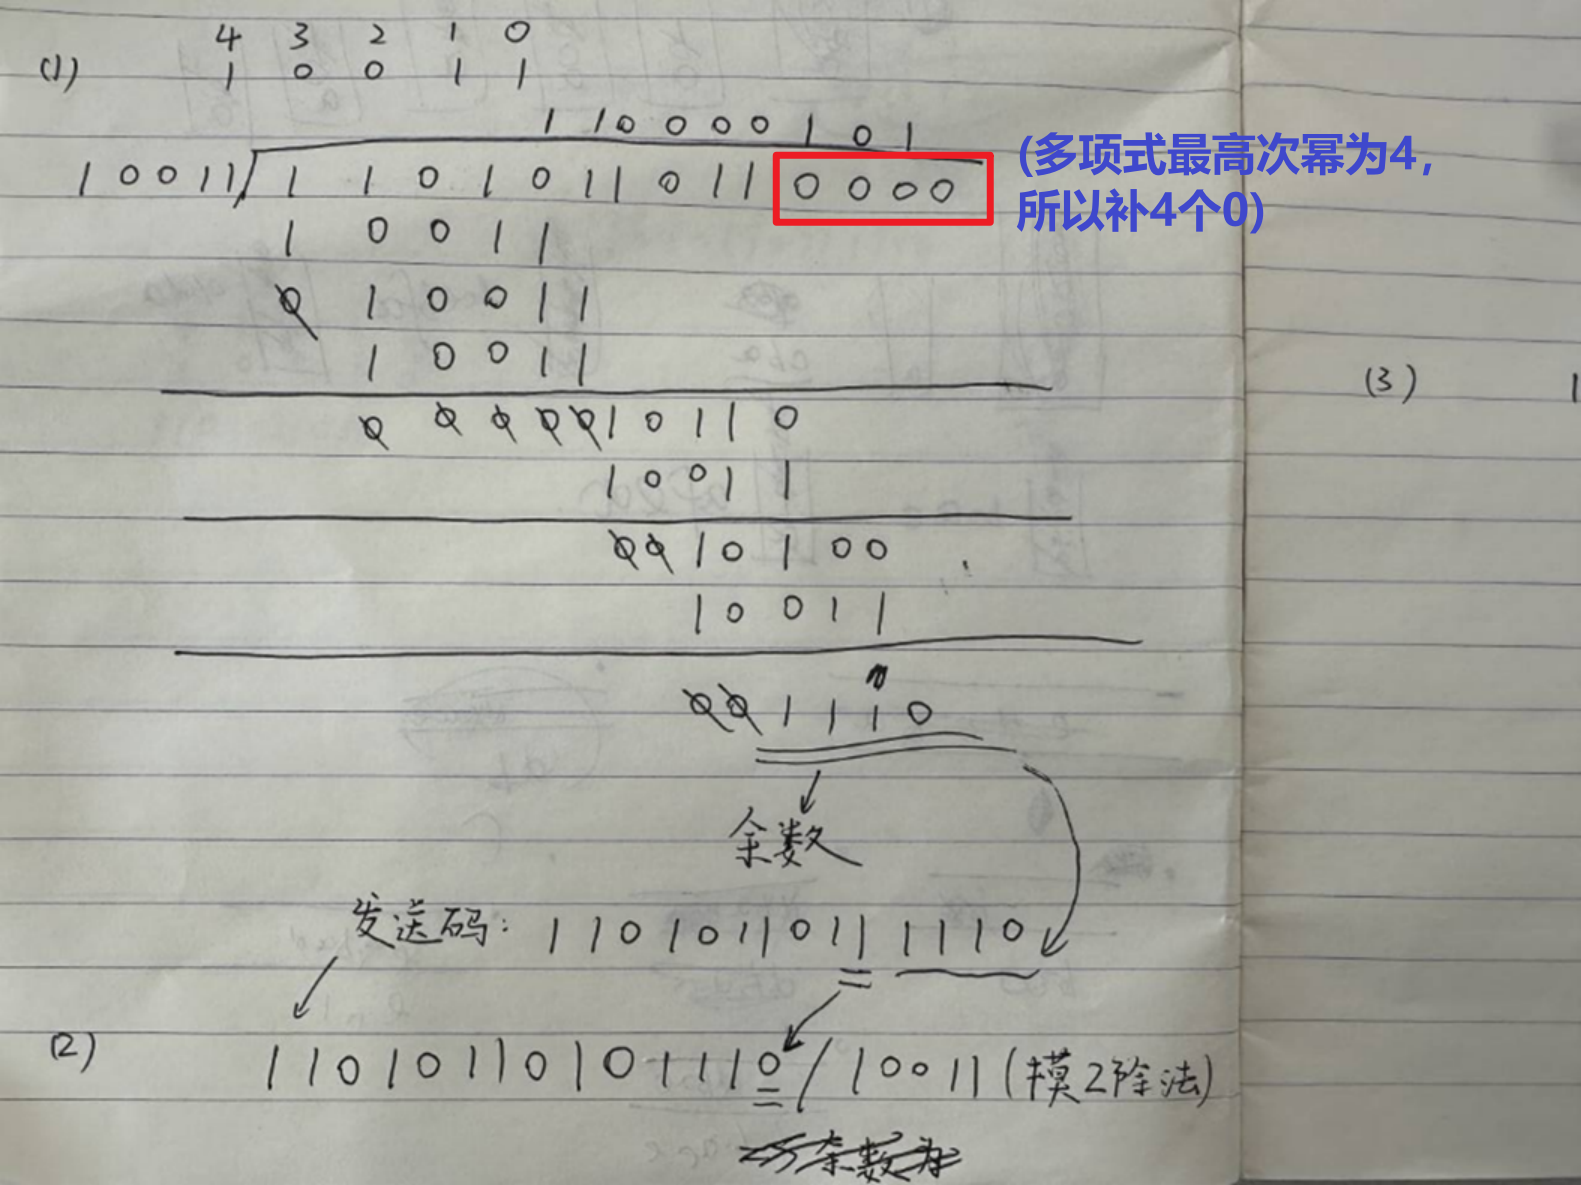 4 3 2 1 0
(1) 1 0 0 1 1
1 1 0 0 0 0 1 0 1
1 0 0 1 1 / 1 1 0 1 0 1 1 0 1 1 0 0 0 0
(多项式最高次幂为4,
所以补4个0)
1 0 0 1 1
0 1 0 0 1 1
1 0 0 1 1
(3) 1
0 0 0 0 0 1 0 1 1 0
1 0 0 1 1
0 0 1 0 1 0 0
1 0 0 1 1
0 0 1 1 1 0
余数
发送码: 1 1 0 1 0 1 1 0 1 1 1 1 1 0
(2) 1 1 0 1 0 1 1 0 1 0 1 1 1 0 / 1 0 0 1 1 (模2除法)